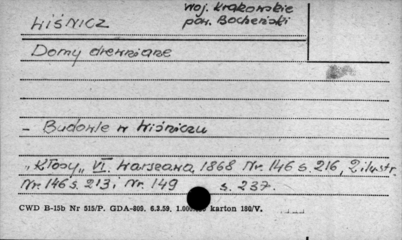 woj. krakowskie
WIŚNICZ pow. Bocheński
Domy drewniane
- Budowle w Wiśniczu
"Kłosy" VI. Warszawa, 1868 Nr. 146 s. 216, 2 ilustr.
Nr. 146 s. 213 i Nr. 149 s. 237.
CWD B-15b Nr 515/P. GDA-809. 6.3.59. karton 180/V.